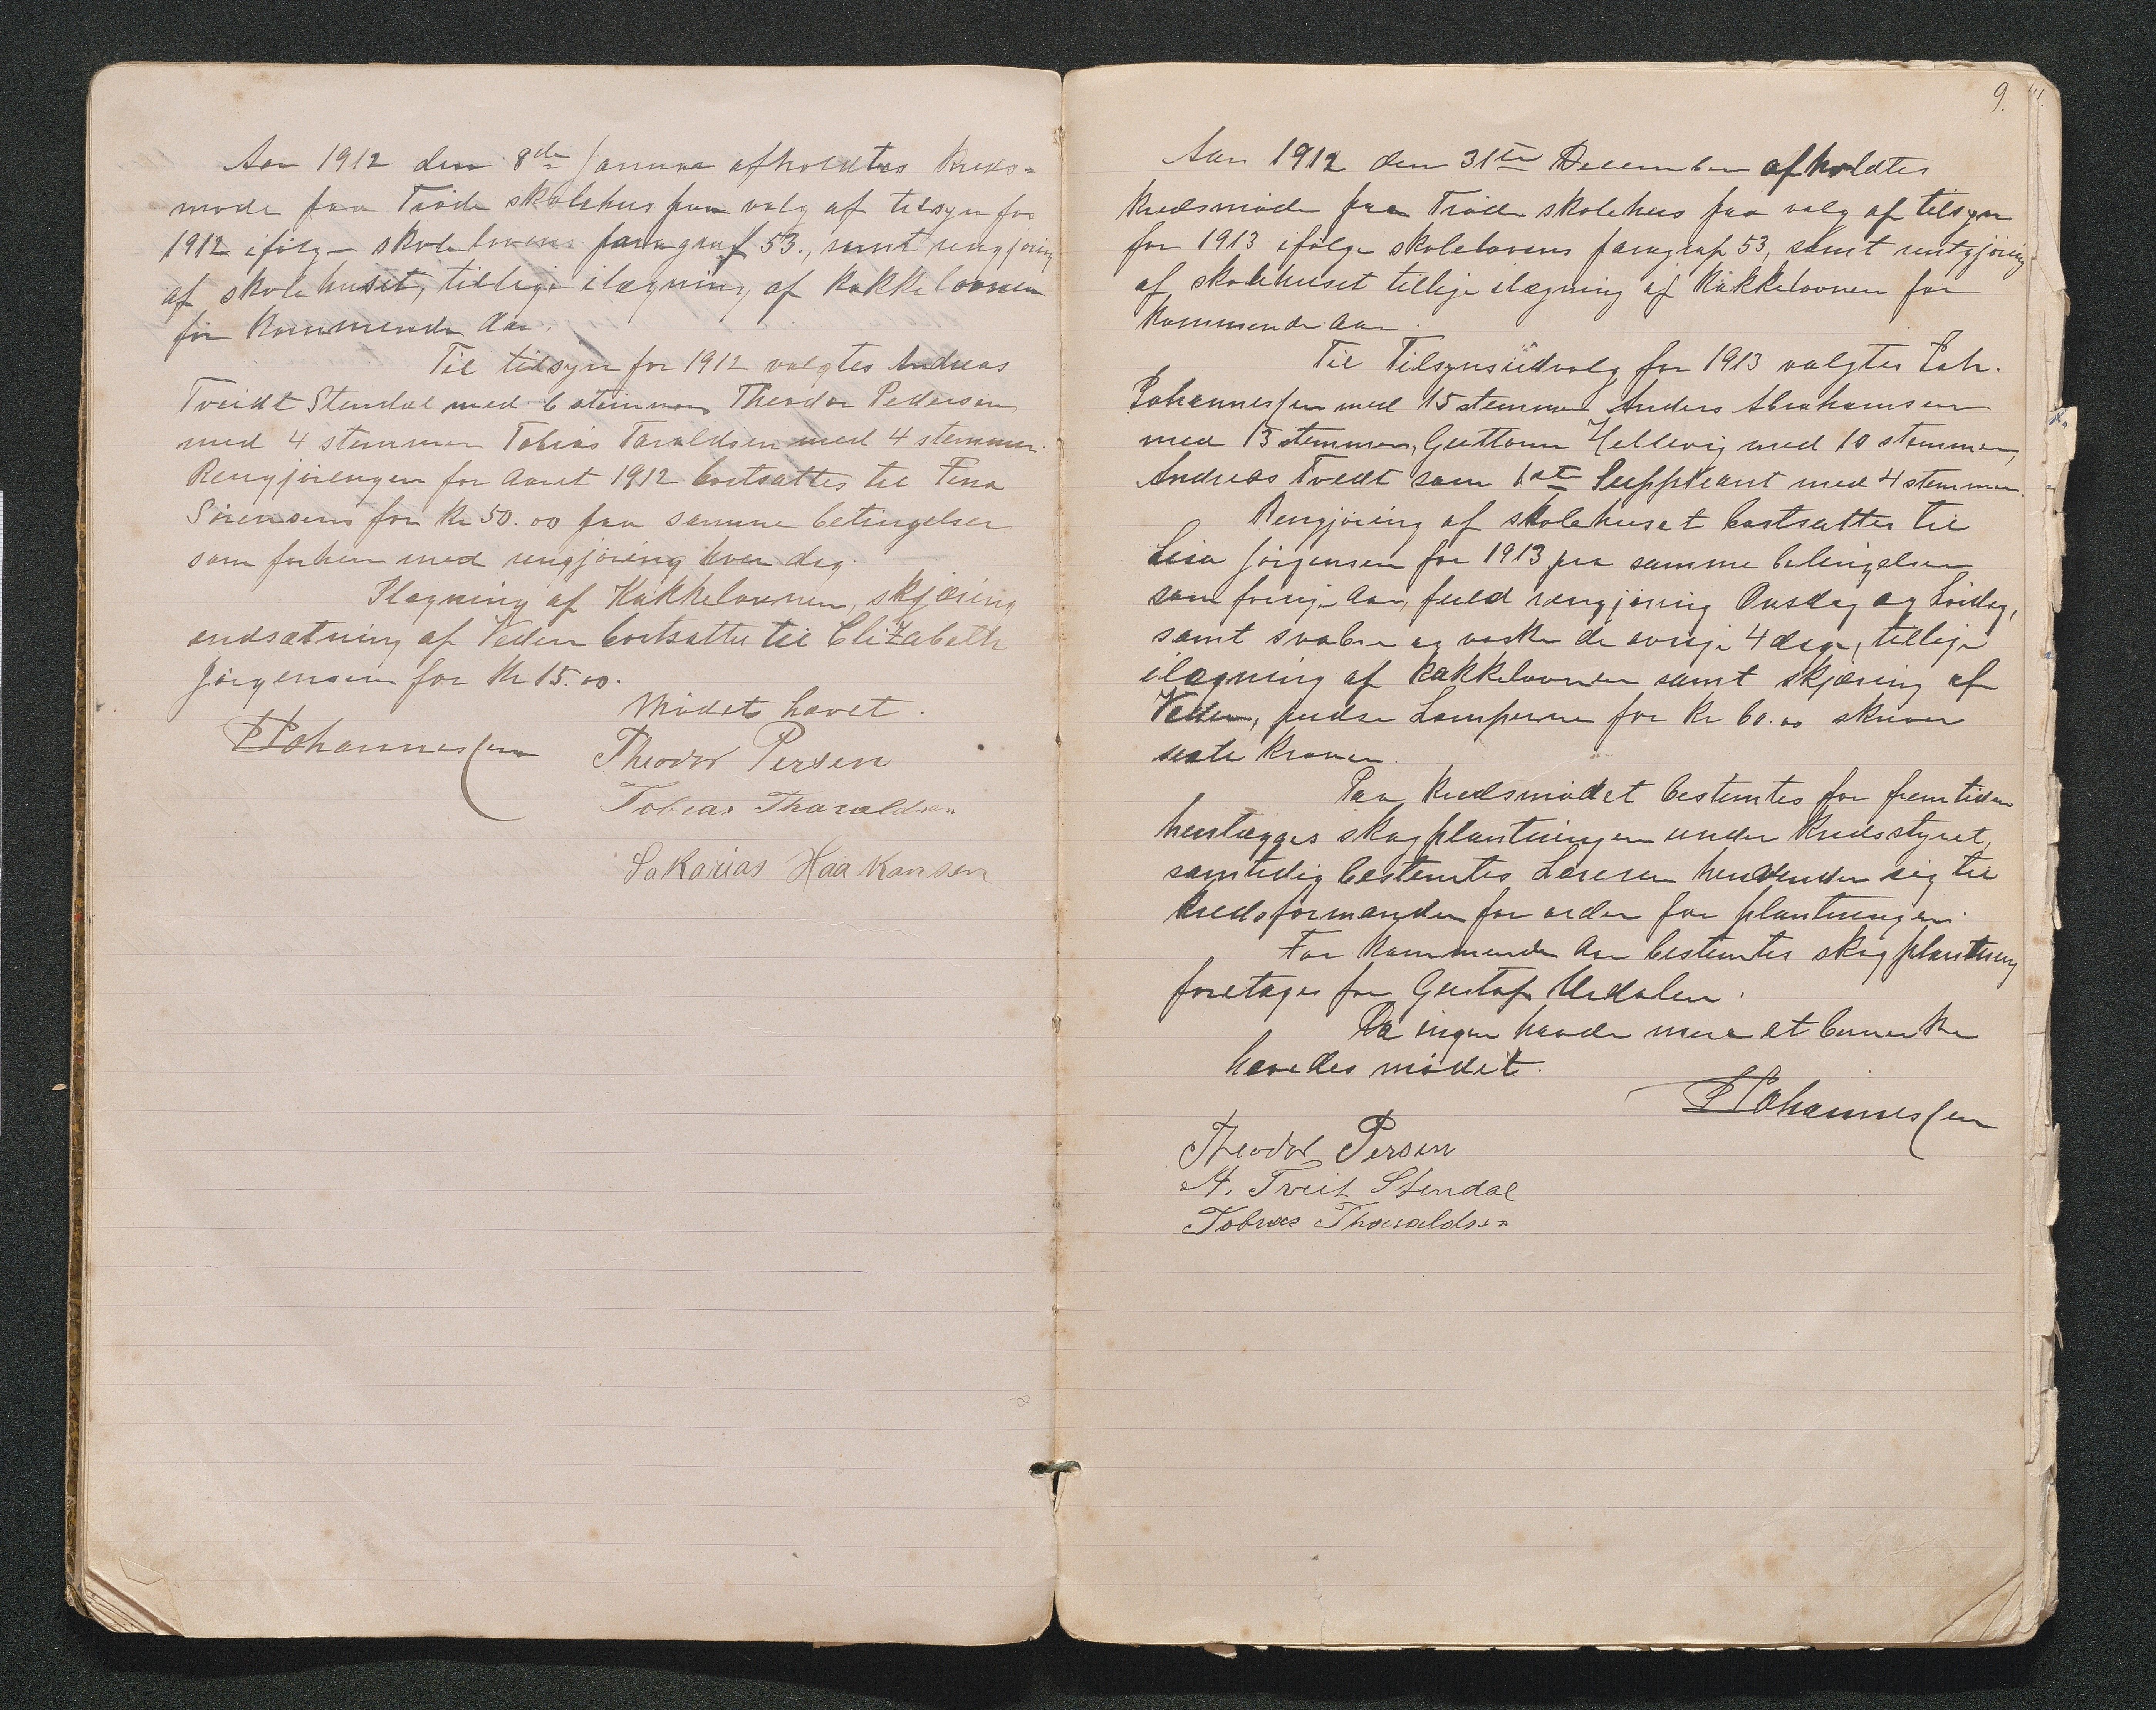 Aar 1912 den 8de Januar afholdtes Kreds-
møde paa Trøde skolehus paa valg af tilsyn for
1912 ifølge skolelovens paragraf 53., samt rengjøring
af skolehuset, tillige ilægning af kakkelovnen
for kommende Aar.
Til tilsyn for 1912 valgtes Andreas
Tveidt Stendal med 6 stemmer Theodor Pedersen
med 4 stemmer Tobias Taraldsen med 4 stemmer.
Rengjøringen for Aaret 1912 bortsattes til Fina
Sørensens for Kr 50.00 paa samme betingelser
som forhen med rengjøring hver dag.
Ilægning af Kakkelovnen, skjæring
indsætning af Veden bortsattes til Elizabeth
Jørgensen for Kr 15.00.
Mødet hævet.
Johannessen
Theodor Persen
Tobias Tharaldsen
Sakarias Haakonsen
9.
Aar 1912 den 31te December afholdtes
Kredsmøde paa Trøde skolehus paa valg af tilsyn
for 1913 ifølge skolelovens paragraf 53, samt rentgjøring
af skolehuset tillige ilægning af Kakkelovnen for
kommende Aar.
Til Tilsynsudvalg for 1913 valgtes Joh.
Johannessen med 15 stemmer Anders Abrahamsen
med 13 stemmer, Guttorm Hellevig med 10 stemmer,
Andreas Tvedt som 1ste Suppleant med 4 stemmer.
Rengjøring af skolehuset bortsattes til
Lisa Jørgensen for 1913 paa samme betingelser
som forrige Aar, fuld rengjøring Onsdag og Lørdag,
samt svabre og vaske de øvrige 4 dage, tillige
ilægning af kakkelovnen samt skjæring af
Veden, pudse Lamperne for Kr 60.00 skriver
sexti Kroner.
Paa Kredsmødet bestemtes for fremtiden
henlægges skogplantningen under Kredsstyret,
samtidig bestemtes Læreren henvender sig til
kredsformanden for order for plantningen.
For kommende Aar bestemtes skogplantning
foretages for Gustaf Urdalen.
Da ingen havde mere at bemerke
hævedes mødet.
Johannessen
Theodor Persen
A. Tveit Stendal
Tobias Tharaldsen